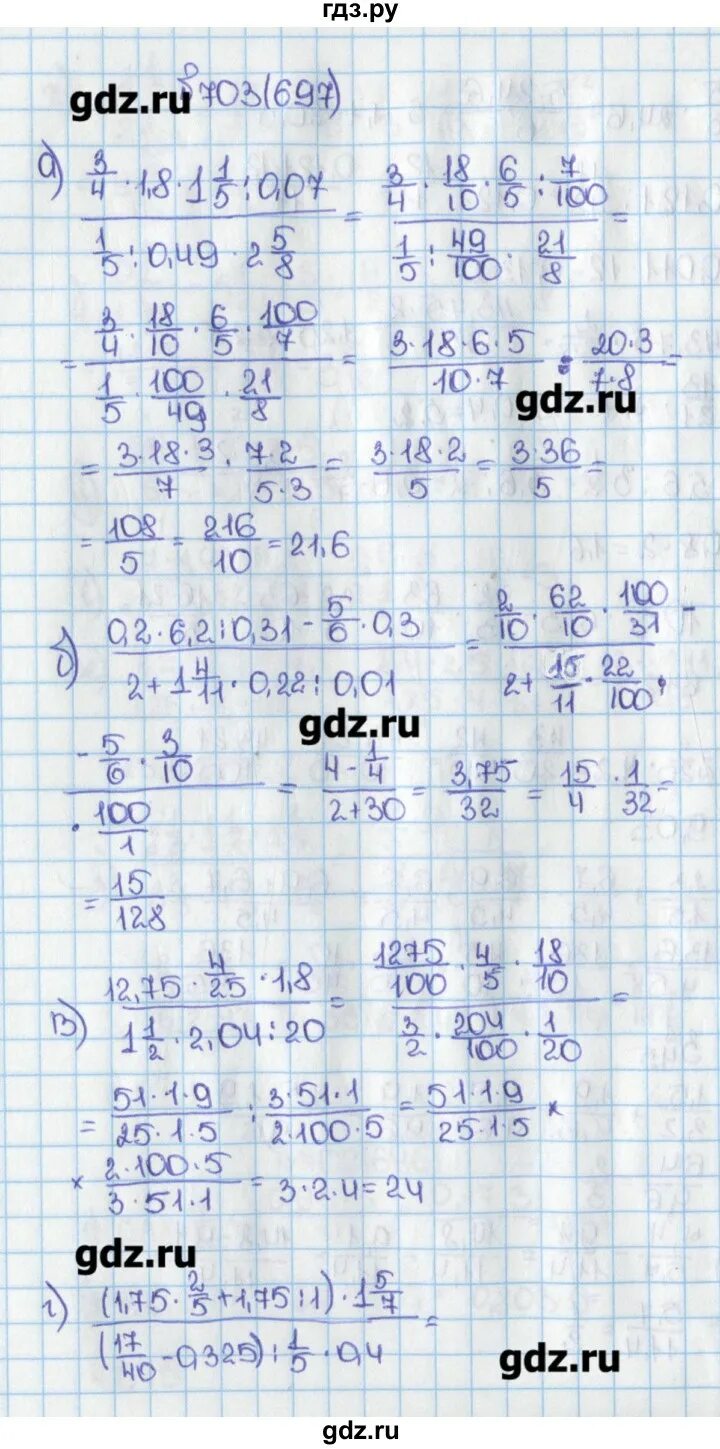 гдз.ру
gdz.ru
703(697)
а) (3/4 · 1,8 · 1 1/5 : 0,07) / (1/5 : 0,49 · 2 5/8) = (3/4 · 18/10 · 6/5 : 7/100) / (1/5 : 49/100 · 21/8) =
= (3/4 · 18/10 · 6/5 · 100/7) / (1/5 · 100/49 · 21/8) = (3·18·6·5)/(10·7) : (20·3)/(7·8) =
gdz.ru
= (3·18·3)/7 · (7·2)/(5·3) = (3·18·2)/5 = (3·36)/5 =
= 108/5 = 216/10 = 21,6
б) (0,2 · 6,2 : 0,31 - 5/6 · 0,3) / (2 + 1 4/11 · 0,22 : 0,01) = (2/10 · 62/10 · 100/31 -) / (2 + 15/11 · 22/100 ·)
gdz.ru
(- 5/6 · 3/10) / (· 100/1) = (4 - 1/4)/(2+30) = 3,75/32 = 15/4 · 1/32 =
= 15/128
в) (12,75 · 4/25 · 1,8) / (1 1/2 · 2,04 : 20) = (1275/100 · 4/5 · 18/10) / (3/2 · 204/100 · 1/20) =
= (51·1·9)/(25·1·5) : (3·51·1)/(2·100·5) = (51·1·9)/(25·1·5) ×
× (2·100·5)/(3·51·1) = 3·2·4 = 24
gdz.ru
г) ((1,75 · 2/5 + 1,75 : 1) · 1 5/7) / ((17/40 - 0,325) : 1/5 · 0,4) =
gdz.ru
gdz.ru